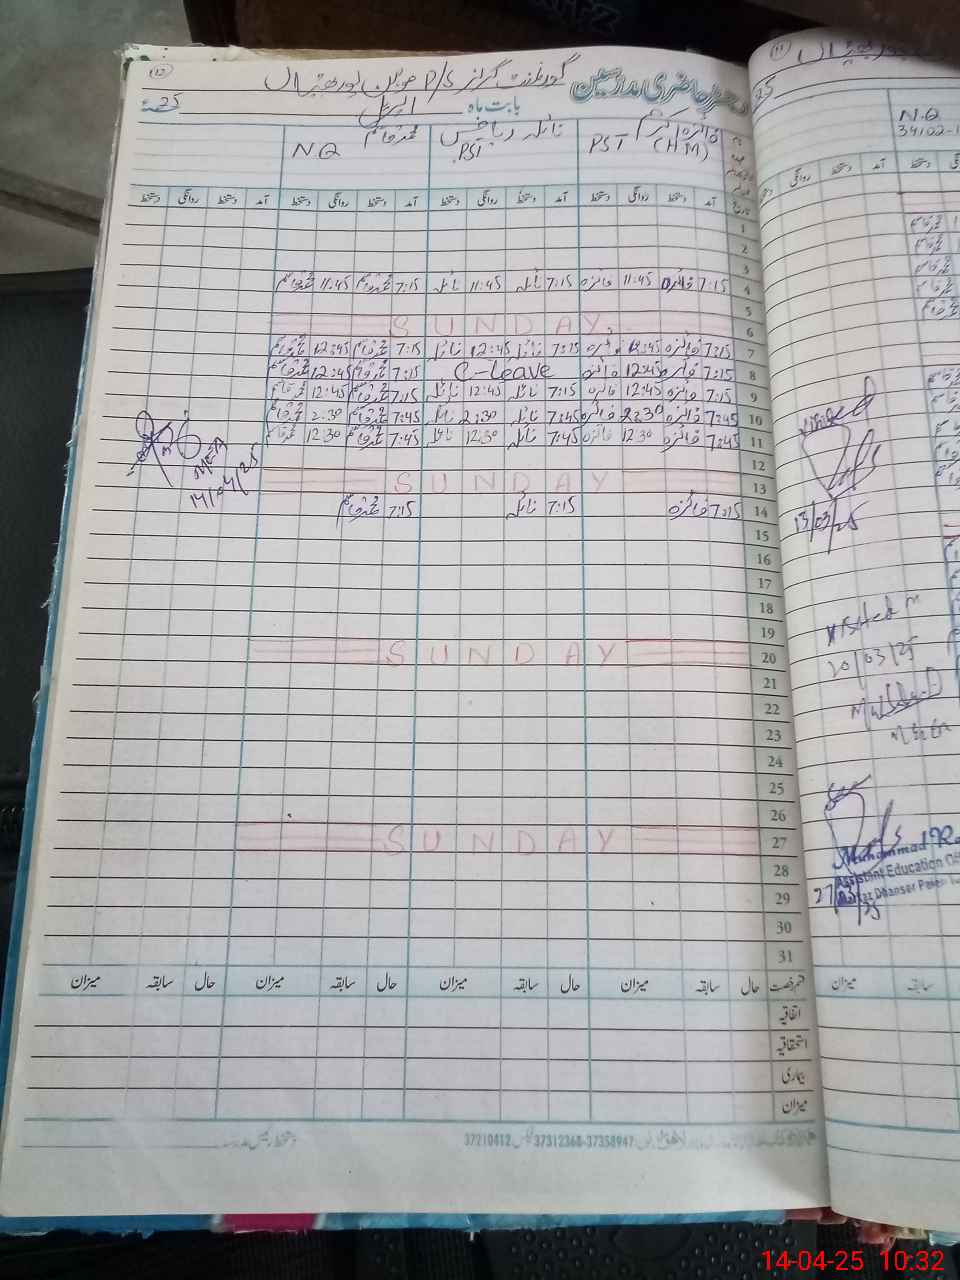 (12)
گورنمنٹ گرلز P/S
دفتر حاضری مدرسین
بابت ماہ اپریل 25
فائزہ اکرم (HM) PST
نائلہ ریاض PST
محمد قاسم NQ
تاریخ آمد دستخط روانگی دستخط آمد دستخط روانگی دستخط آمد دستخط روانگی دستخط آمد دستخط روانگی دستخط
1
2
3
4 7:15 فائزہ 11:45 فائزہ 7:15 نائلہ 11:45 نائلہ 7:15 محمد قاسم 11:45 محمد قاسم
5
6 SUNDAY
7 7:15 فائزہ 12:45 فائزہ 7:15 نائلہ 12:45 نائلہ 7:15 محمد قاسم 12:45 محمد قاسم
8 7:15 فائزہ 12:45 فائزہ C-Leave 7:15 محمد قاسم 12:45 محمد قاسم
9 7:15 فائزہ 12:45 فائزہ 7:15 نائلہ 12:45 نائلہ 7:15 محمد قاسم 12:45 محمد قاسم
10 7:45 فائزہ 2:30 فائزہ 7:45 نائلہ 2:30 نائلہ 7:45 محمد قاسم 2:30 محمد قاسم
11 7:45 فائزہ 12:30 فائزہ 7:45 نائلہ 12:30 نائلہ 7:45 محمد قاسم 12:30 محمد قاسم
12
13 SUNDAY
14 7:15 فائزہ 7:15 نائلہ 7:15 محمد قاسم
MEA
14/04/25
15
16
17
18
19
20 SUNDAY
21
22
23
24
25
26
27 SUNDAY
28
29
30
31
قسم رخصت حال سابقہ میزان حال سابقہ میزان حال سابقہ میزان حال سابقہ میزان
اتفاقیہ
استحقاقیہ
بیماری
میزان
دستخط رئیس مدرسہ
37312368-37358947
37210412
(11)
25
N.Q
34102-1
روانگی دستخط آمد دستخط
محمد قاسم
محمد قاسم
محمد قاسم
محمد قاسم
محمد قاسم
visited
13/03/25
Visited
20/03/25
27/3/25
Muhammad
Assistant Education Off
Markaz Dhanser Paien
میزان سابقہ
14-04-25 10:32